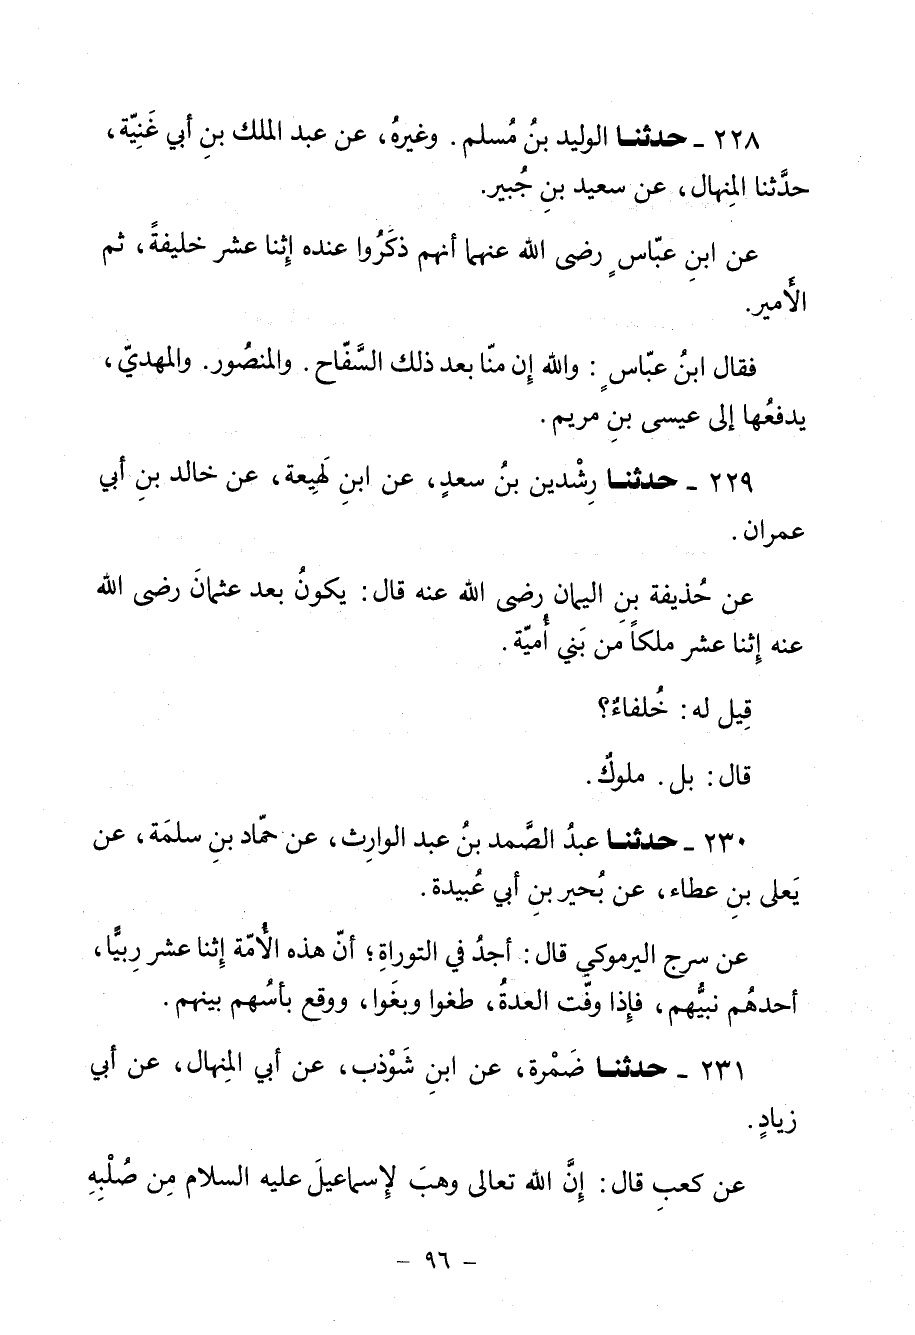 ٢٢٨ ـ حدثنا الوليد بنُ مُسلم. وغيرهُ، عن عبد الملك بنِ أبي غَنِيّة،
حدَّثنا المِنهال، عن سعيد بنِ جُبير.
عن ابنِ عبّاسٍ رضى الله عنهما أنهم ذكَرُوا عنده إثنا عشر خليفةً، ثم
الأَمير.
فقال ابنُ عبّاسٍ: والله إن منّا بعد ذلك السَّفّاح. والمنصُور. والمهديّ،
يدفعُها إلى عيسى بنِ مريم.
٢٢٩ ـ حدثنا رِشْدين بنُ سعدٍ، عن ابنِ لَهِيعة، عن خالد بنِ أبي
عمران.
عن حُذيفة بنِ اليمان رضى الله عنه قال: يكونُ بعد عثمانَ رضى الله
عنه إثنا عشر ملكاً من بَني أُميّة.
قِيل له: خُلفاءٌ؟
قال: بل. ملوكٌ.
٢٣٠ ـ حدثنا عبدُ الصَّمد بنُ عبد الوارِث، عن حمّاد بنِ سلمَة، عن
يَعلى بنِ عطاء، عن بُحير بنِ أبي عُبيدة.
عن سرج اليرموكي قال: أجدُ في التوراةِ؛ أنّ هذه الأُمّة إثنا عشر رِبيًّا،
أحدهُم نبيُّهم، فإِذا وفّت العدةُ، طغوا وبغَوا، ووقع بأسُهم بينهم.
٢٣١ ـ حدثنا ضَمْرة، عن ابنِ شَوْذب، عن أبي المِنهال، عن أبي
زيادٍ.
عن كعبٍ قال: إِنَّ الله تعالى وهبَ لإسماعيلَ عليه السلام مِن صُلْبِهِ
ـ ٩٦ ـ